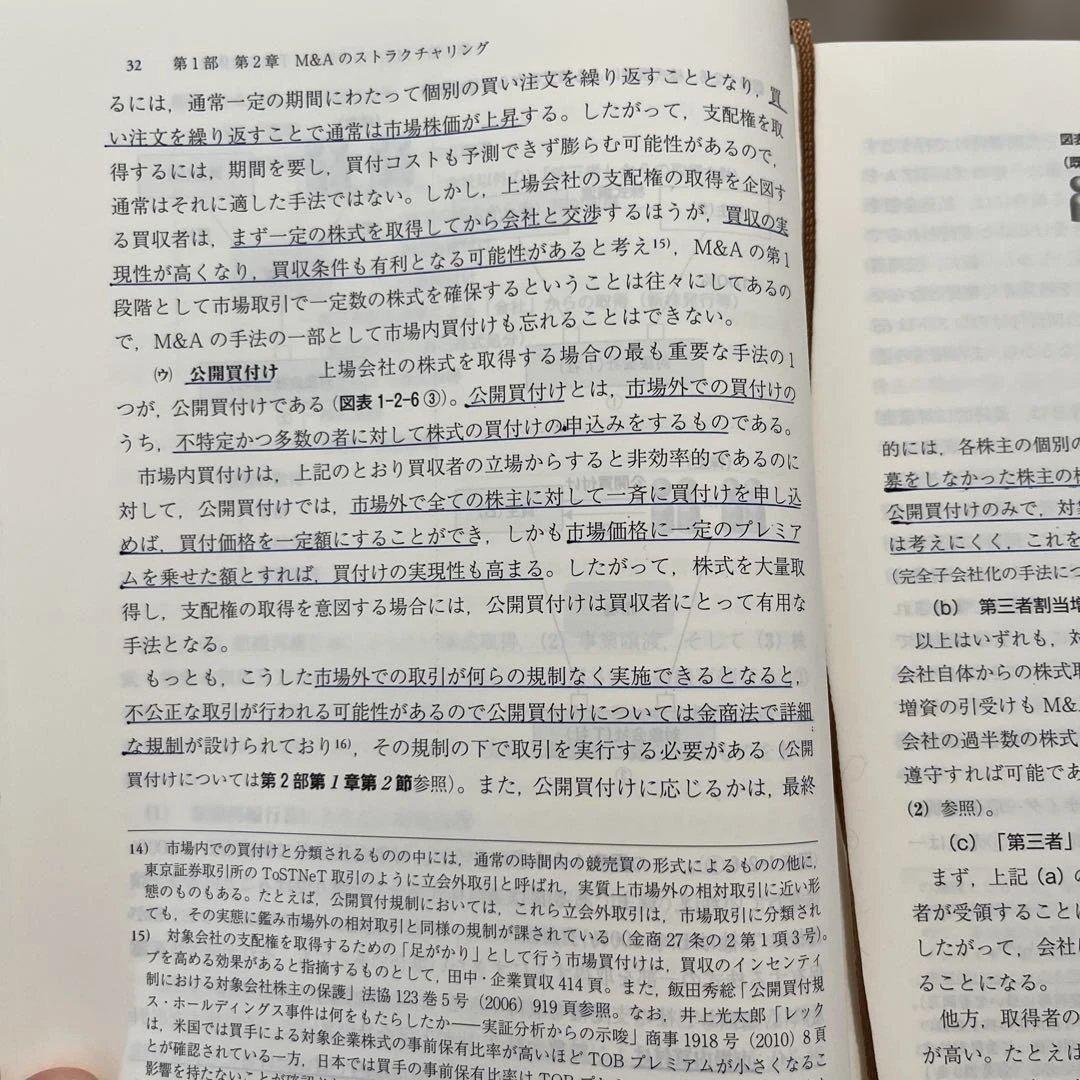 32　第1部　第2章　M&Aのストラクチャリング
るには，通常一定の期間にわたって個別の買い注文を繰り返すこととなり，買
い注文を繰り返すことで通常は市場株価が上昇する。したがって，支配権を取
得するには，期間を要し，買付コストも予測できず膨らむ可能性があるので，
通常はそれに適した手法ではない。しかし，上場会社の支配権の取得を企図す
る買収者は，まず一定の株式を取得してから会社と交渉するほうが，買収の実
現性が高くなり，買収条件も有利となる可能性があると考え15)，M&Aの第1
段階として市場取引で一定数の株式を確保するということは往々にしてあるの
で，M&Aの手法の一部として市場内買付けも忘れることはできない。
(ウ)　公開買付け　　上場会社の株式を取得する場合の最も重要な手法の1
つが，公開買付けである（図表1-2-6③）。公開買付けとは，市場外での買付けの
うち，不特定かつ多数の者に対して株式の買付けの申込みをするものである。
市場内買付けは，上記のとおり買収者の立場からすると非効率的であるのに
対して，公開買付けでは，市場外で全ての株主に対して一斉に買付けを申し込
めば，買付価格を一定額にすることができ，しかも市場価格に一定のプレミア
ムを乗せた額とすれば，買付けの実現性も高まる。したがって，株式を大量取
得し，支配権の取得を意図する場合には，公開買付けは買収者にとって有用な
手法となる。
もっとも，こうした市場外での取引が何らの規制なく実施できるとなると，
不公正な取引が行われる可能性があるので公開買付けについては金商法で詳細
な規制が設けられており16)，その規制の下で取引を実行する必要がある（公開
買付けについては第2部第1章第2節参照）。また，公開買付けに応じるかは，最終
14)　市場内での買付けと分類されるものの中には，通常の時間内の競売買の形式によるものの他に，
東京証券取引所のToSTNeT取引のように立会外取引と呼ばれ，実質上市場外の相対取引に近い形
態のものもある。たとえば，公開買付規制においては，これら立会外取引は，市場取引に分類され
ても，その実態に鑑み市場外の相対取引と同様の規制が課されている（金商27条の2第1項3号）。
15)　対象会社の支配権を取得するための「足がかり」として行う市場買付けは，買収のインセンティ
ブを高める効果があると指摘するものとして，田中・企業買収414頁。また，飯田秀総「公開買付規
制における対象会社株主の保護」法協123巻5号（2006）919頁参照。なお，井上光太郎「レック
ス・ホールディングス事件は何をもたらしたか——実証分析からの示唆」商事1918号（2010）8頁
は，米国では買手による対象企業株式の事前保有比率が高いほどTOBプレミアムが小さくなるこ
とが確認されている一方，日本では買手の事前保有比率はTOBプレ
影響を持たないことが確認
図表
(既
的には，各株主の個別の
募をしなかった株主の株
公開買付けのみで，対象
は考えにくく，これを
（完全子会社化の手法につ
(b)　第三者割当増
以上はいずれも，対
会社自体からの株式取
増資の引受けもM&
会社の過半数の株式
遵守すれば可能であ
(2) 参照）。
(c)　「第三者」
まず，上記(a)の
者が受領することに
したがって，会社に
ることになる。
他方，取得者の
が高い。たとえば